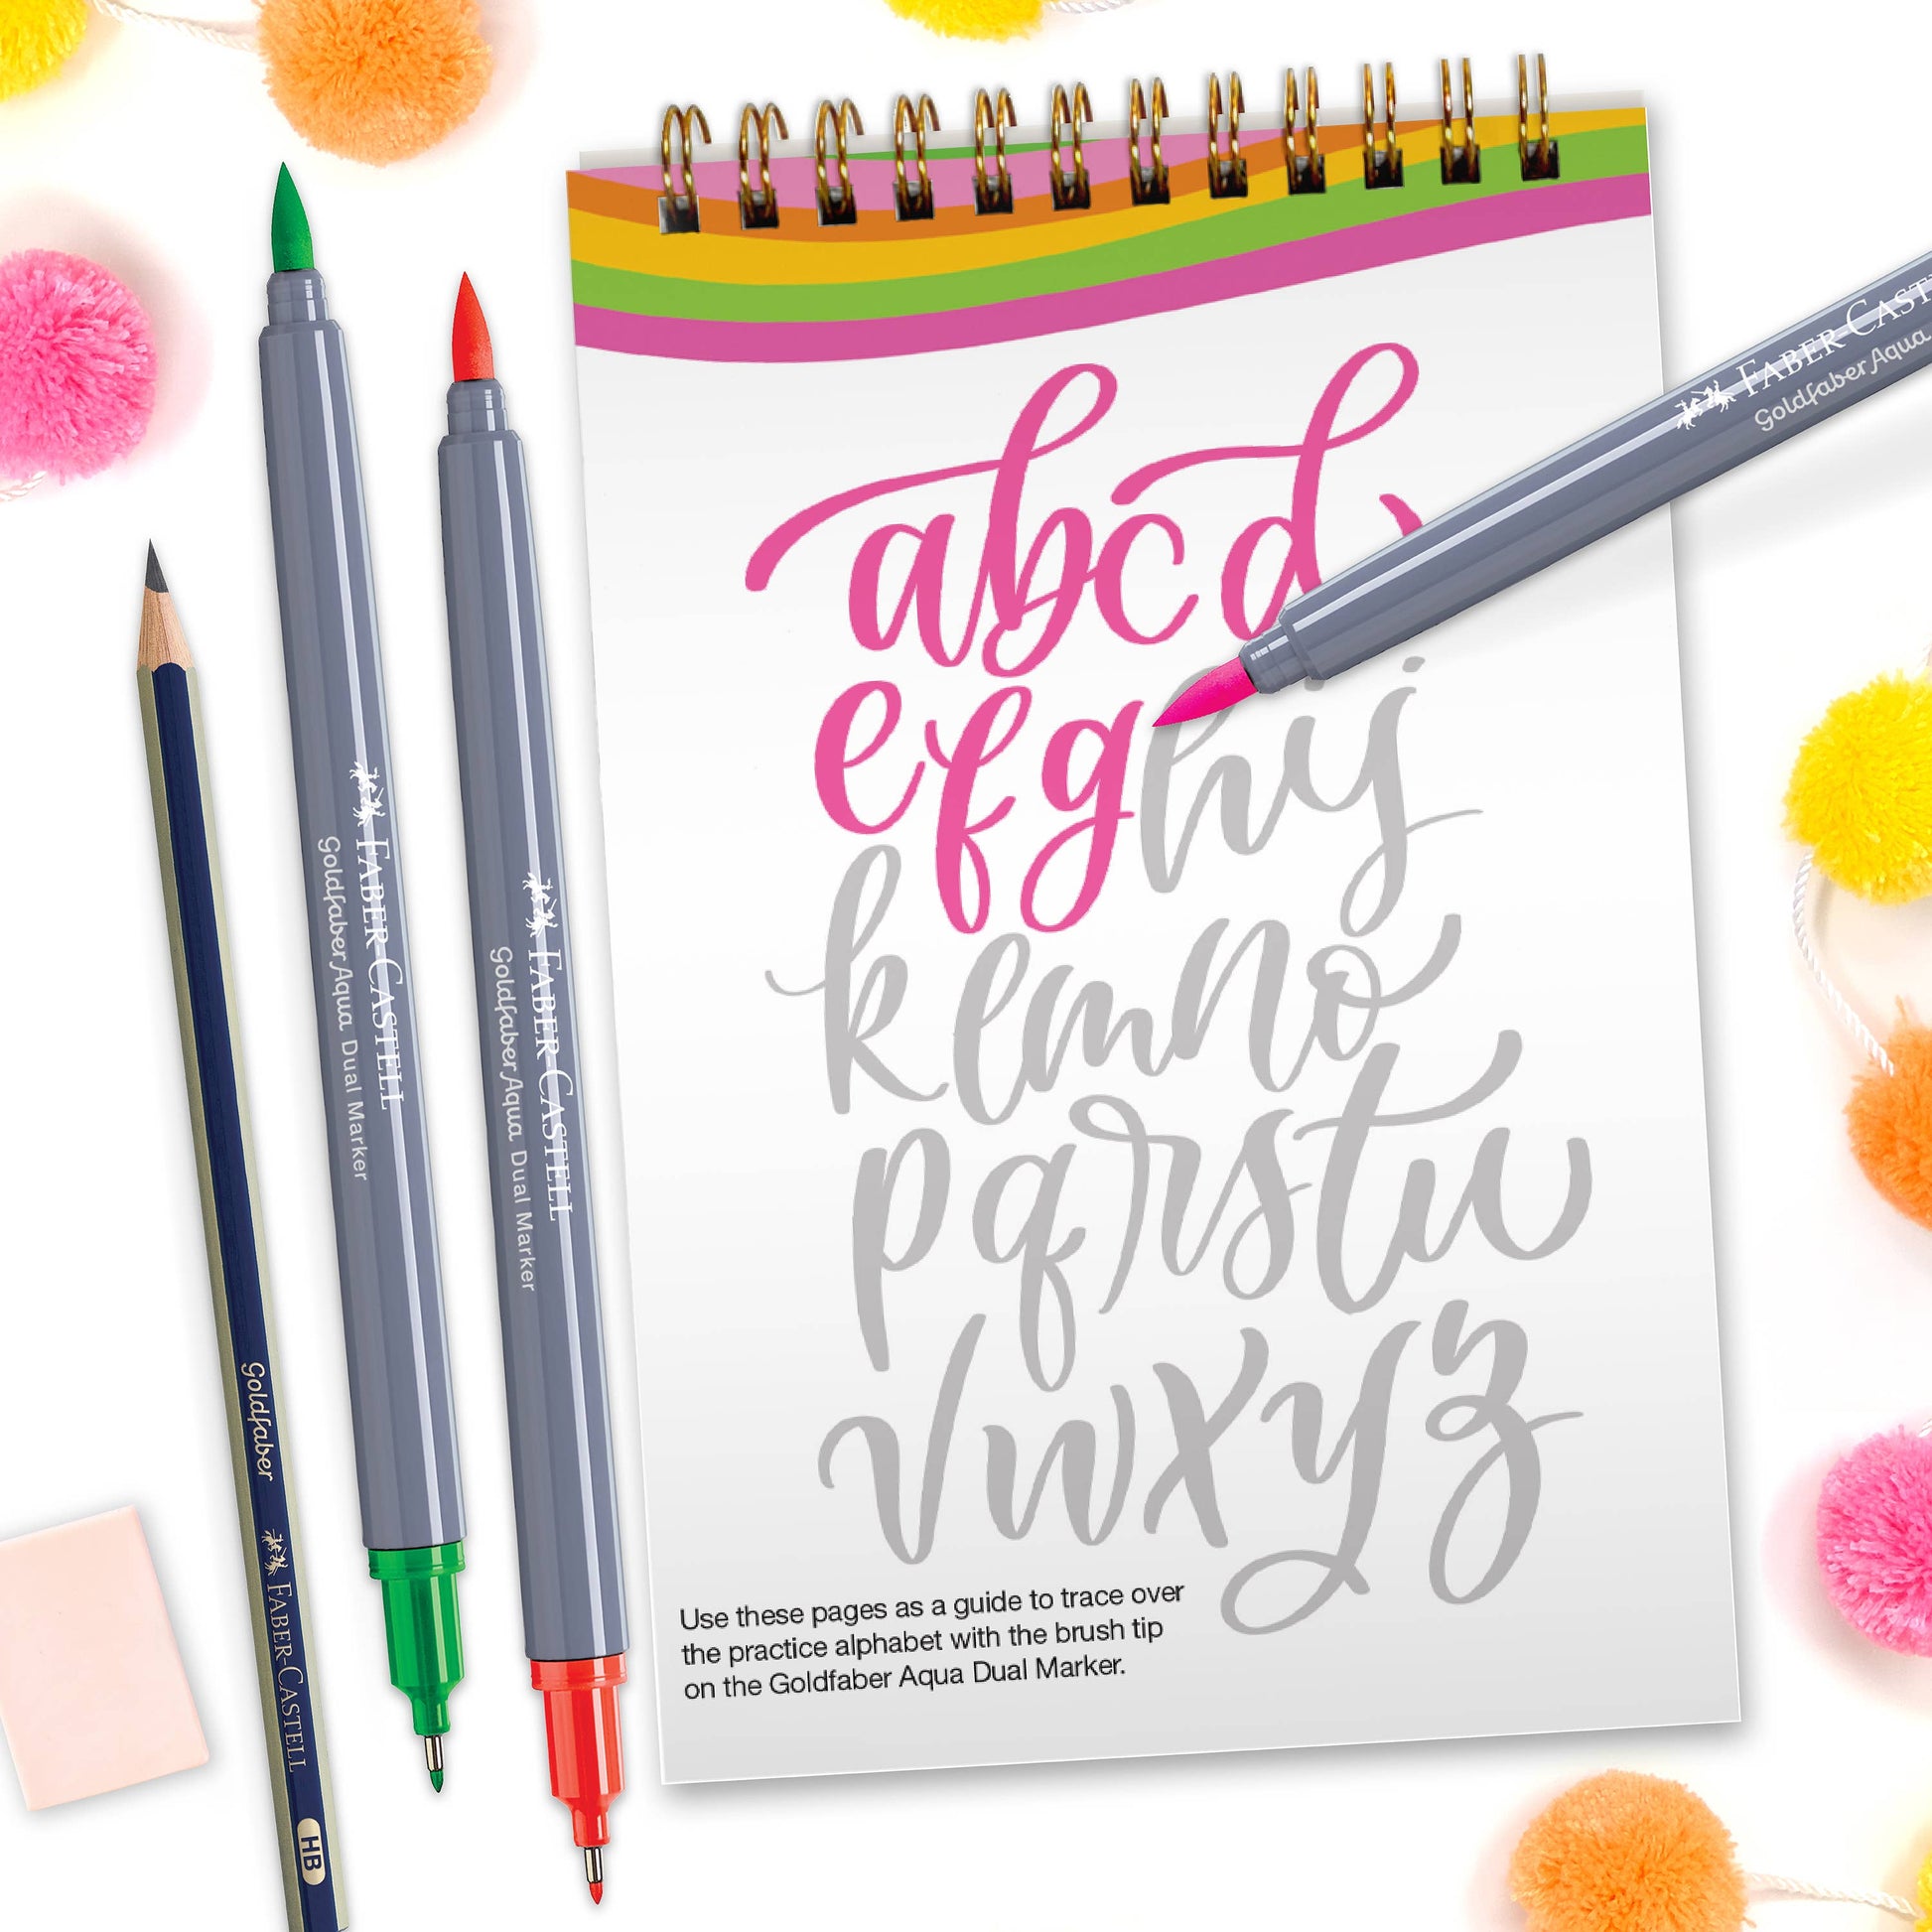 abcd
efghij
klmno
pqrstu
vwxyz
Use these pages as a guide to trace over
the practice alphabet with the brush tip
on the Goldfaber Aqua Dual Marker.
FABER-CASTELL
Goldfaber Aqua Dual Marker
FABER-CASTELL
Goldfaber Aqua Dual Marker
Goldfaber
FABER-CASTELL
HB
FABER-CAST
Goldfaber Aqua